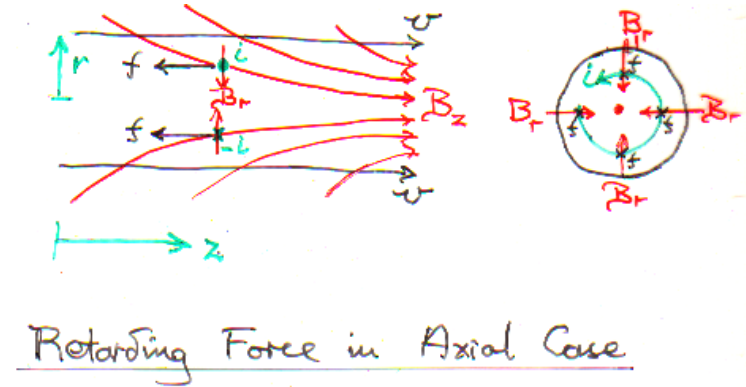 v
r
f i
B_r
B_z
f -i
v
z
B_r
i f
B_r f f B_r
f
B_r
Retarding Force in Axial Case